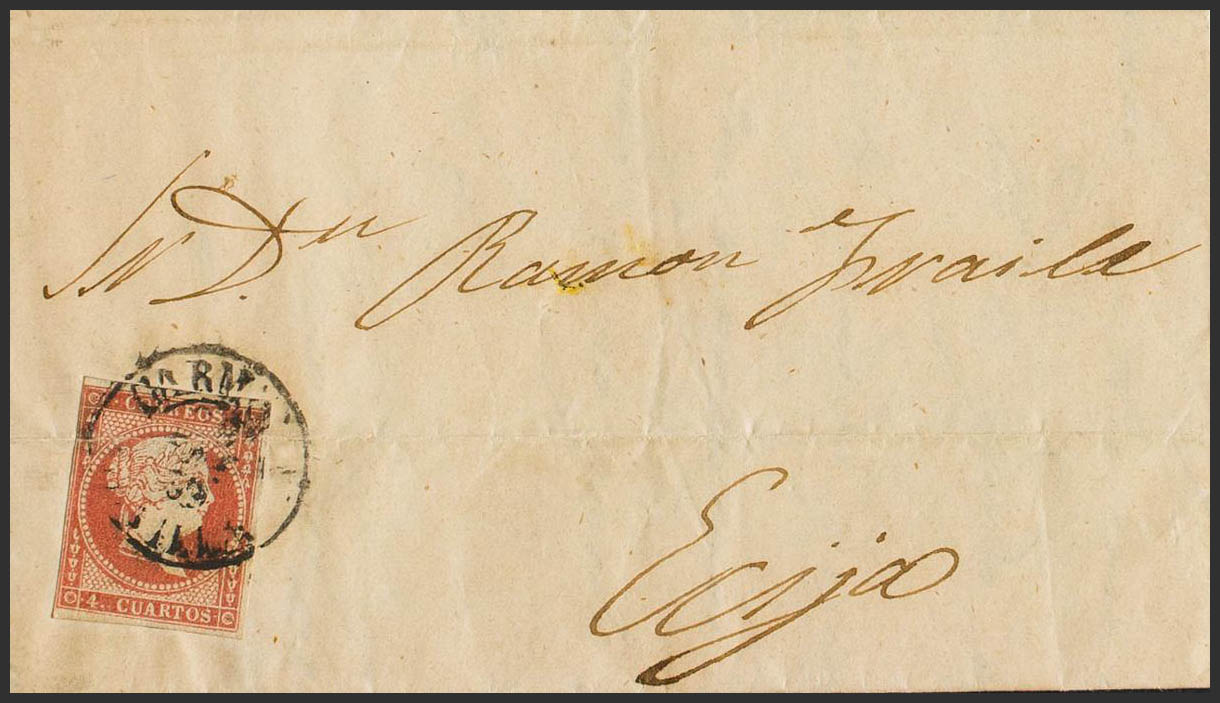 Sr Dn Ramon Fraile
CORREOS
4 CUARTOS
Ecija